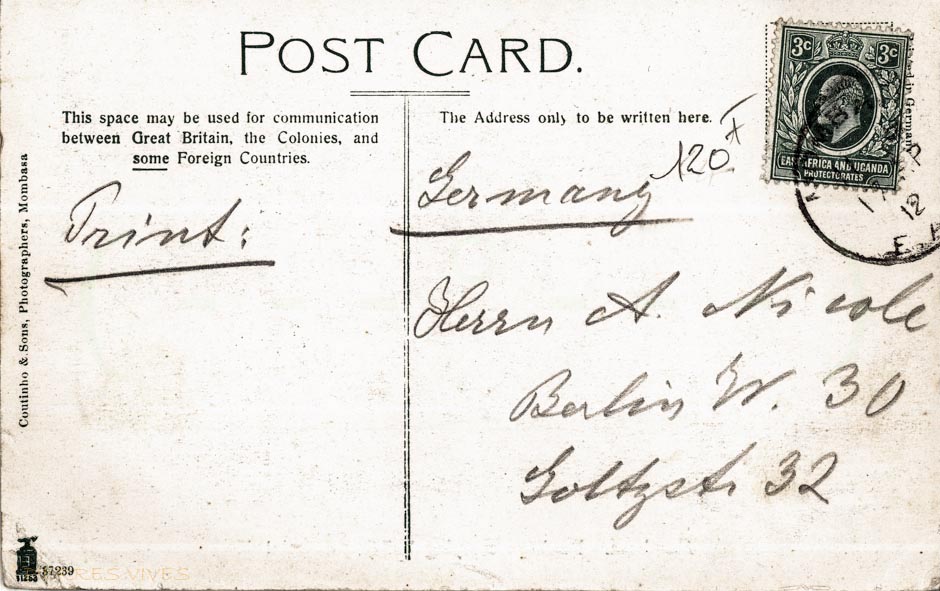 POST CARD.
This space may be used for communication
between Great Britain, the Colonies, and
some Foreign Countries.
The Address only to be written here.
120
3c 3c
EAST AFRICA AND UGANDA
PROTECTORATES
in Germany
12
Germany
Print:
Herrn A. Nicole
Berlin W. 30
Goltzstr 32
Coutinho & Sons, Photographers, Mombasa
57239
RES VIVES